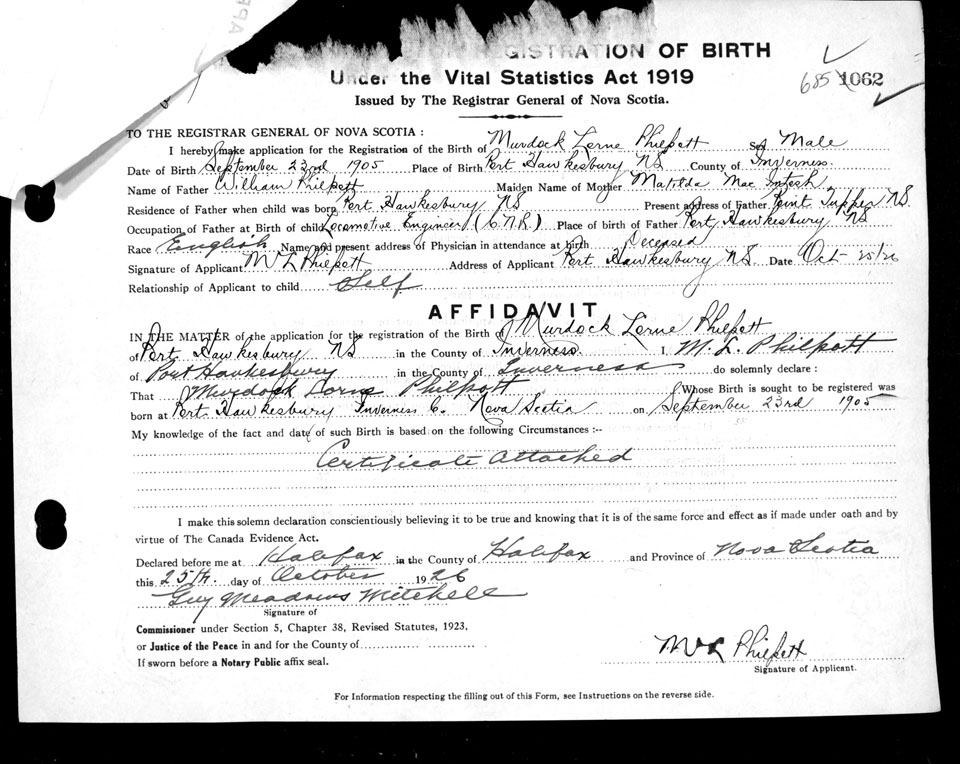 REGISTRATION OF BIRTH
Under the Vital Statistics Act 1919
685 1062
Issued by The Registrar General of Nova Scotia.
TO THE REGISTRAR GENERAL OF NOVA SCOTIA :
I hereby make application for the Registration of the Birth of Murdock Lorne Philpott Sex Male
Date of Birth September 23rd 1905 Place of Birth Port Hawkesbury NS County of Inverness.
Name of Father William Philpott Maiden Name of Mother Matilda Mac Intosh
Residence of Father when child was born Port Hawkesbury NS Present address of Father Point Tupper N.S.
Occupation of Father at Birth of child Locomotive Engineer (C.N.R.) Place of birth of Father Port Hawkesbury NS
Race English Name and present address of Physician in attendance at birth Deceased
Signature of Applicant M L Philpott Address of Applicant Port Hawkesbury NS. Date Oct 25/26
Relationship of Applicant to child Self
AFFIDAVIT
IN THE MATTER of the application for the registration of the Birth of Murdock Lorne Philpott
of Port Hawkesbury NS in the County of Inverness. I, M. L. Philpott
of Port Hawkesbury in the County of Inverness do solemnly declare :
That Murdock Lorne Philpott Whose Birth is sought to be registered was
born at Port Hawkesbury Inverness C. Nova Scotia on September 23rd 1905
My knowledge of the fact and date of such Birth is based on the following Circumstances :--
Certificate Attached
I make this solemn declaration conscientiously believing it to be true and knowing that it is of the same force and effect as if made under oath and by
virtue of The Canada Evidence Act.
Declared before me at Halifax in the County of Halifax and Province of Nova Scotia
this 25th. day of October 1926
Guy Meadows Mitchell
Signature of
Commissioner under Section 5, Chapter 38, Revised Statutes, 1923.
or Justice of the Peace in and for the County of
If sworn before a Notary Public affix seal.
M L Philpott
Signature of Applicant.
For Information respecting the filling out of this Form, see Instructions on the reverse side.